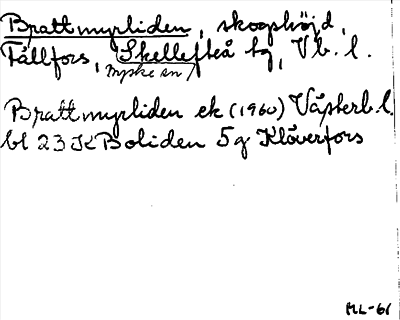 Brattmyrliden, skogshöjd,
Fällfors, Skellefteå tg, Vb. l.
Myske sn
Brattmyrliden ek (1960) Västerb. l.
bl 23 K Boliden 5 g Klöverfors
ML-61